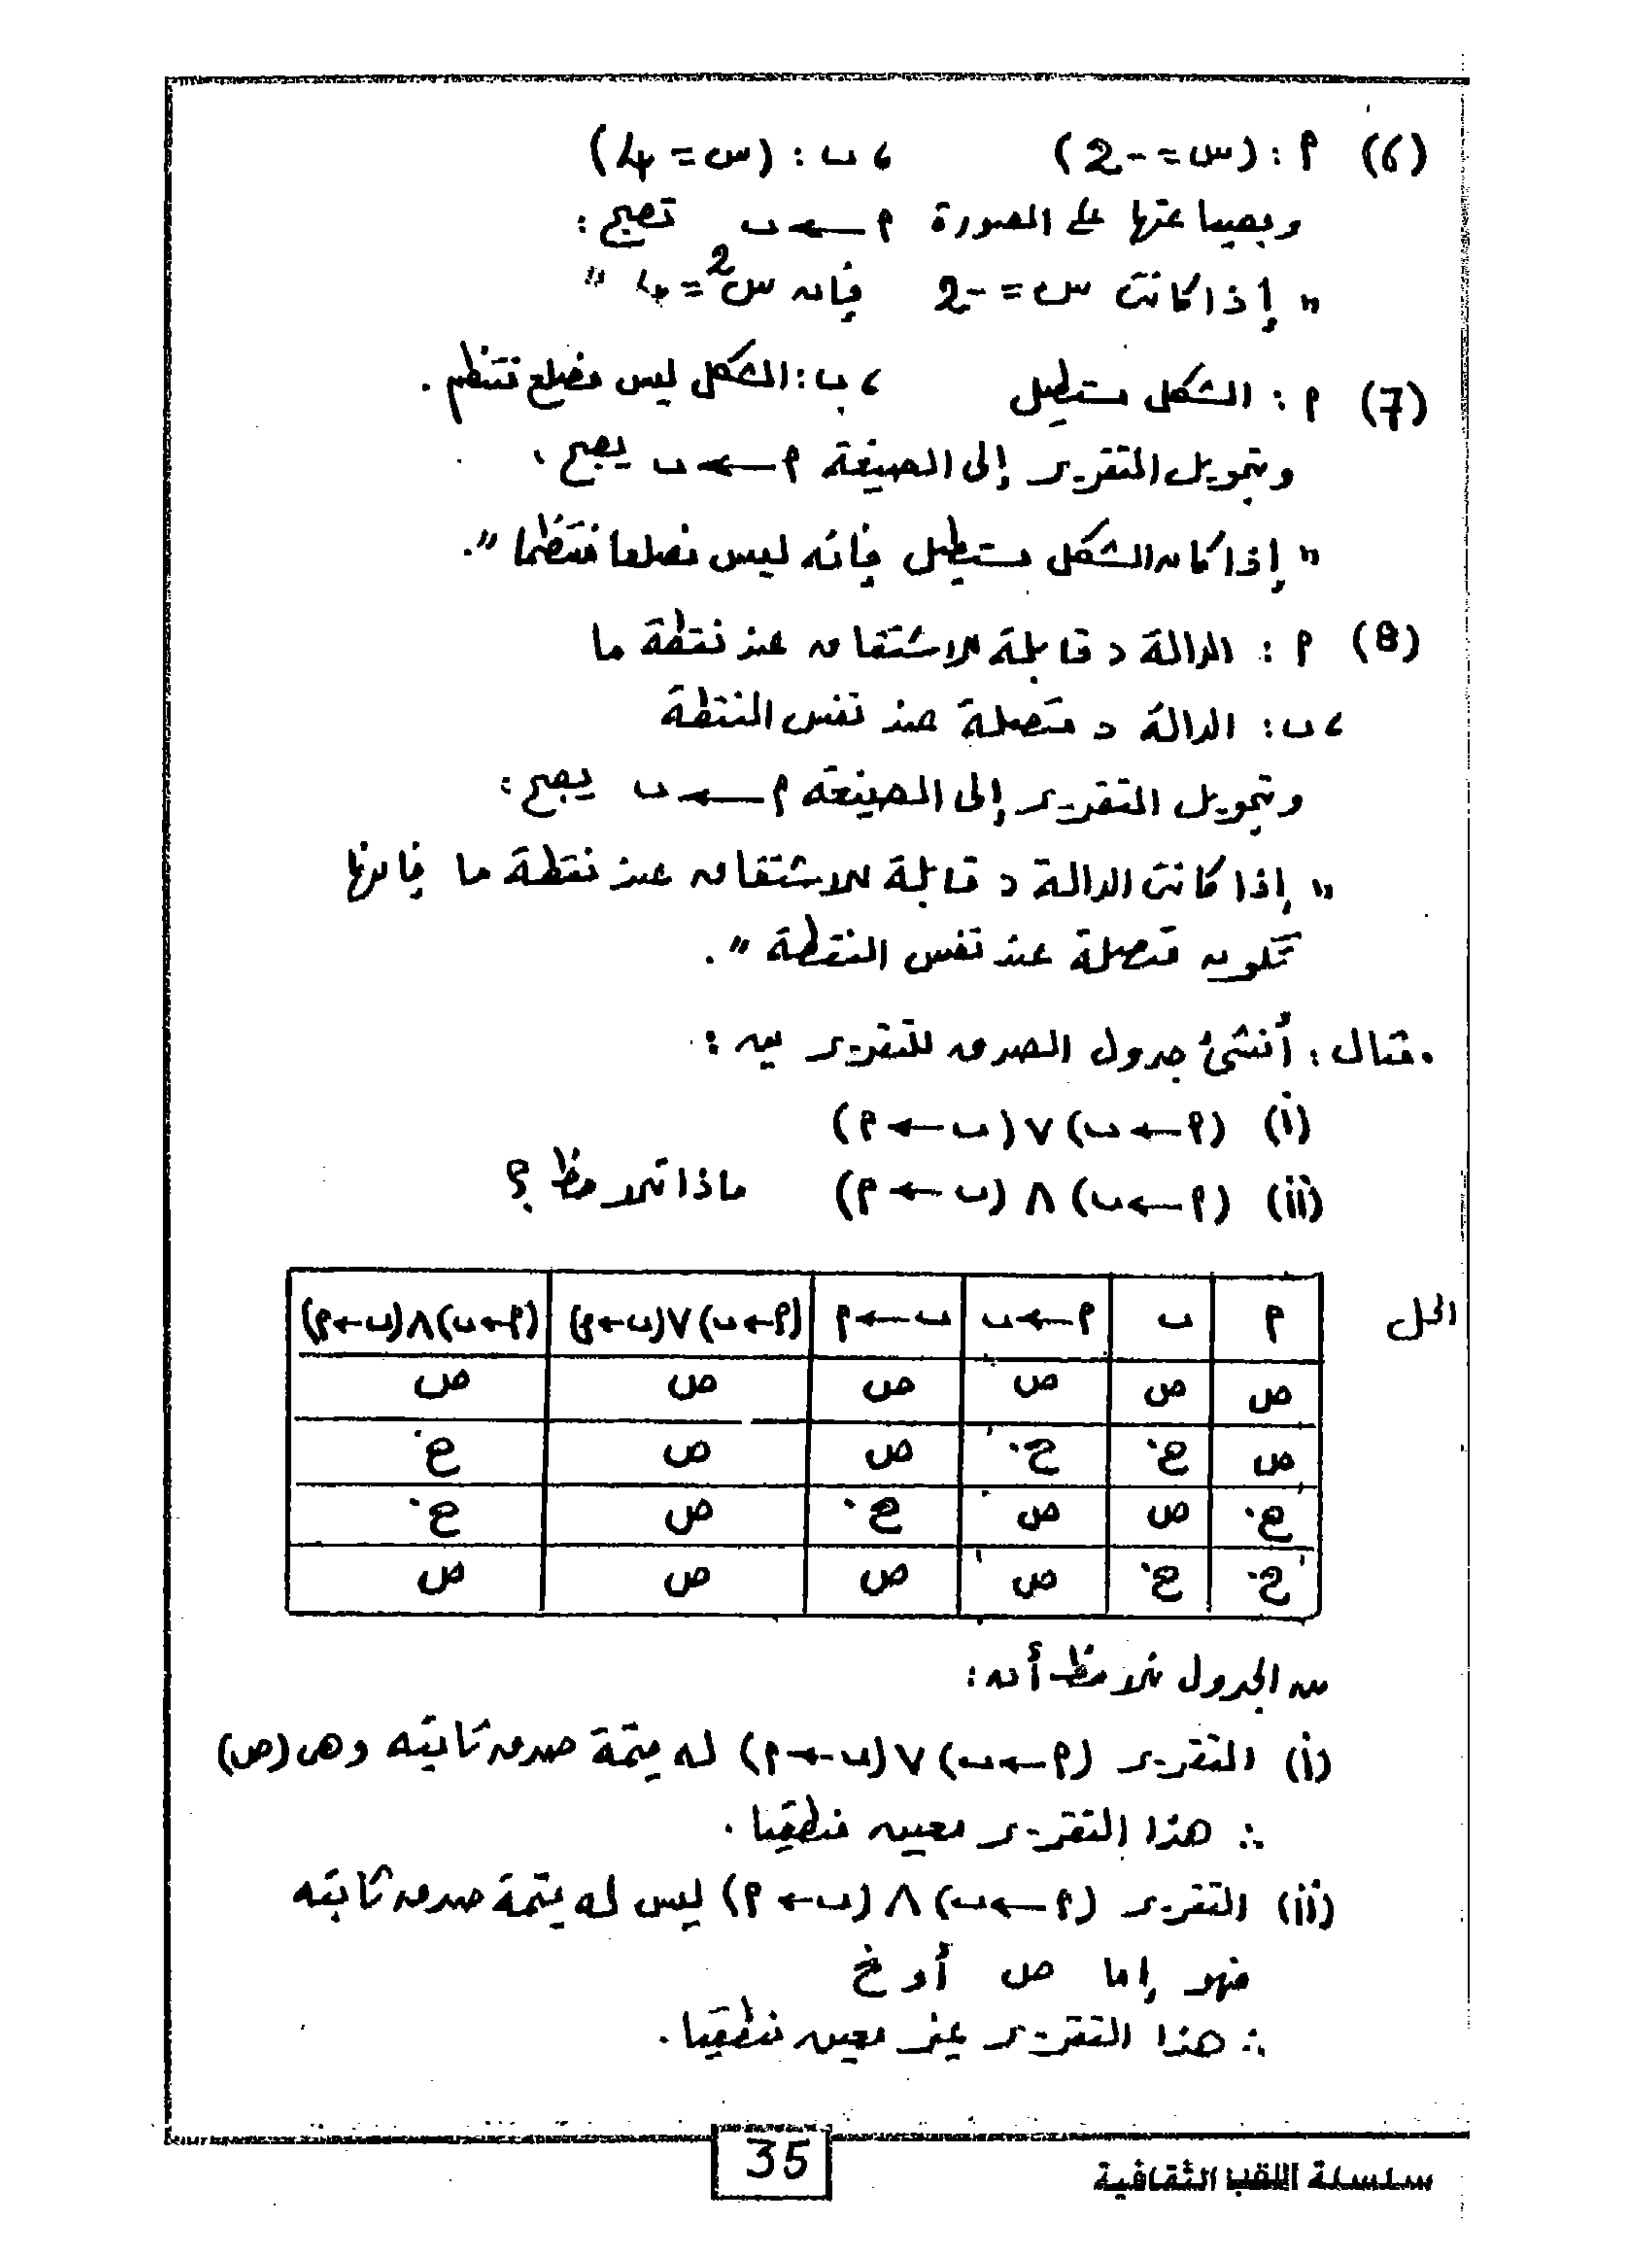 (6) م : (س = -2) ، ب : (س = 4)
وبصياغتها على الصورة م ← ب تصبح :
" إذا كانت س = -2 فإن س² = 4 "
(7) م : الشكل مستطيل ، ب : الشكل ليس مضلع منتظم .
وبتحويل التقرير إلى الصيغة م ← ب يصبح ،
" إذا كان الشكل مستطيل فإنه ليس مضلعا منتظما " .
(8) م : الدالة د قابلة للاشتقاق عند نقطة ما
، ب : الدالة د متصلة عند نفس النقطة
وبتحويل التقرير إلى الصيغة م ← ب يصبح :
" إذا كانت الدالة د قابلة للاشتقاق عند نقطة ما فإنها
تكون متصلة عند نفس النقطة " .
. مثال : أنشئ جدول الصدق للتقريرين :
(i) (م ← ب) ∨ (ب ← م)
(ii) (م ← ب) ∧ (ب ← م) ماذا تلاحظ ؟
الحل
م | ب | م ← ب | ب ← م | (م ← ب) ∨ (ب ← م) | (م ← ب) ∧ (ب ← م)
ص | ص | ص | ص | ص | ص
ص | خ | خ | ص | ص | خ
خ | ص | ص | خ | ص | خ
خ | خ | ص | ص | ص | ص
من الجدول نلاحظ أن :
(i) التقرير (م ← ب) ∨ (ب ← م) له قيمة صدق ثابته وهى (ص)
∴ هذا التقرير معين منطقيا .
(ii) التقرير (م ← ب) ∧ (ب ← م) ليس له قيمة صدق ثابته
فهو إما ص أو خ
∴ هذا التقرير غير معين منطقيا .
35
سلسلة اللقب الثقافية